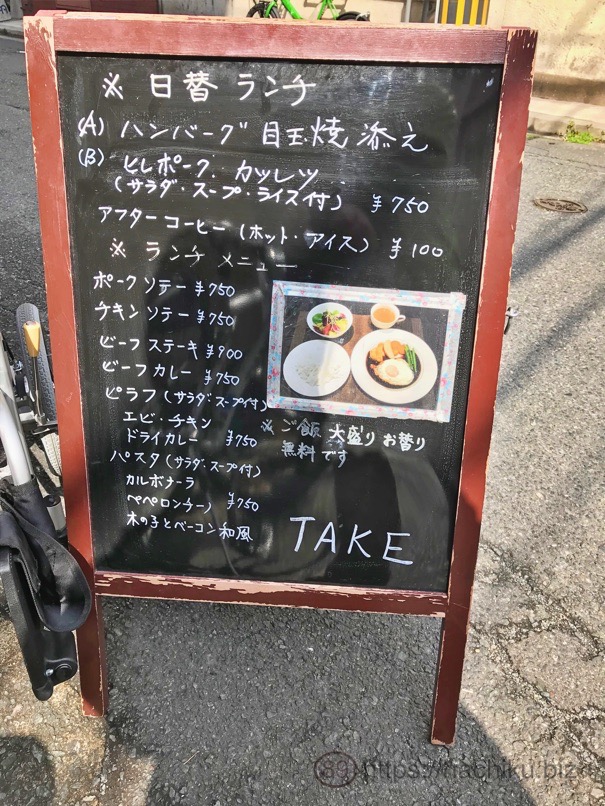 ※ 日替 ランチ
(A) ハンバーグ 目玉焼 添え
(B) ヒレポーク カツレツ
(サラダ・スープ・ライス付) ¥750
アフターコーヒー (ホット・アイス) ¥100
※ ランチ メニュー
ポーク ソテー ¥750
チキン ソテー ¥750
ビーフ ステーキ ¥900
ビーフ カレー ¥750
ピラフ (サラダ・スープ付)
エビ・チキン
ドライカレー ¥750
※ ご飯 大盛り お替り
無料です
パスタ (サラダ・スープ付)
カルボナーラ
ペペロンチーノ ¥750
木の子とベーコン和風
TAKE
89 https://hachiku.biz